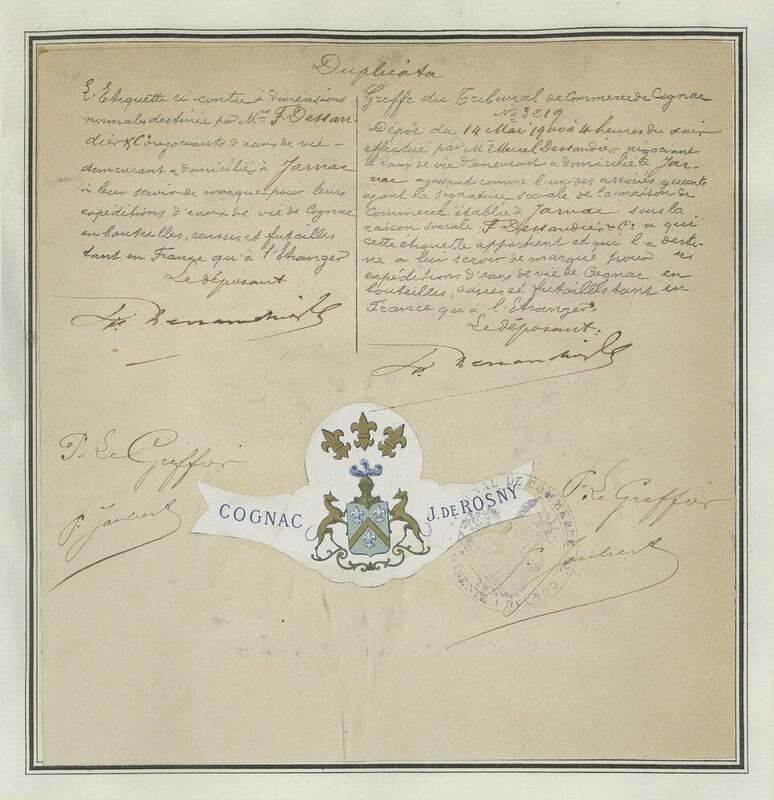 Duplicata
L'Etiquette ci-contre à dimensions
normales destinée par Mrs F. Dessan-
dier & Cie négociants d'eaux de vie
demeurant & domiciliés à Jarnac
à leur servir de marque pour leurs
expéditions d'eaux de vie de Cognac
en bouteilles, caisses et futailles
tant en France qu'à l'Etranger
Le déposant
Greffe du Tribunal de Commerce de Cognac
No 3219
Dépôt du 14 Mai 190 à 4 heures du soir
effectué par Mr Marcel Dessandier, négociant
d'eaux de vie demeurant & domicilié à Jar-
nac agissant comme l'un des associés gérants
ayant la signature sociale de la maison de
Commerce établie à Jarnac sous la
raison sociale F. Dessandier & Cie à qui
cette étiquette appartient et qui l'a desti-
né à lui servir de marque pour ses
expéditions d'eaux de vie de Cognac en
bouteilles, caisses et futailles tant en
France qu'à l'Etranger
Le déposant:
P. Le Greffier
P. Jaubert
COGNAC J. DE ROSNY
P. Le Greffier
P. Jaubert
TRIBUNAL DE COMMERCE